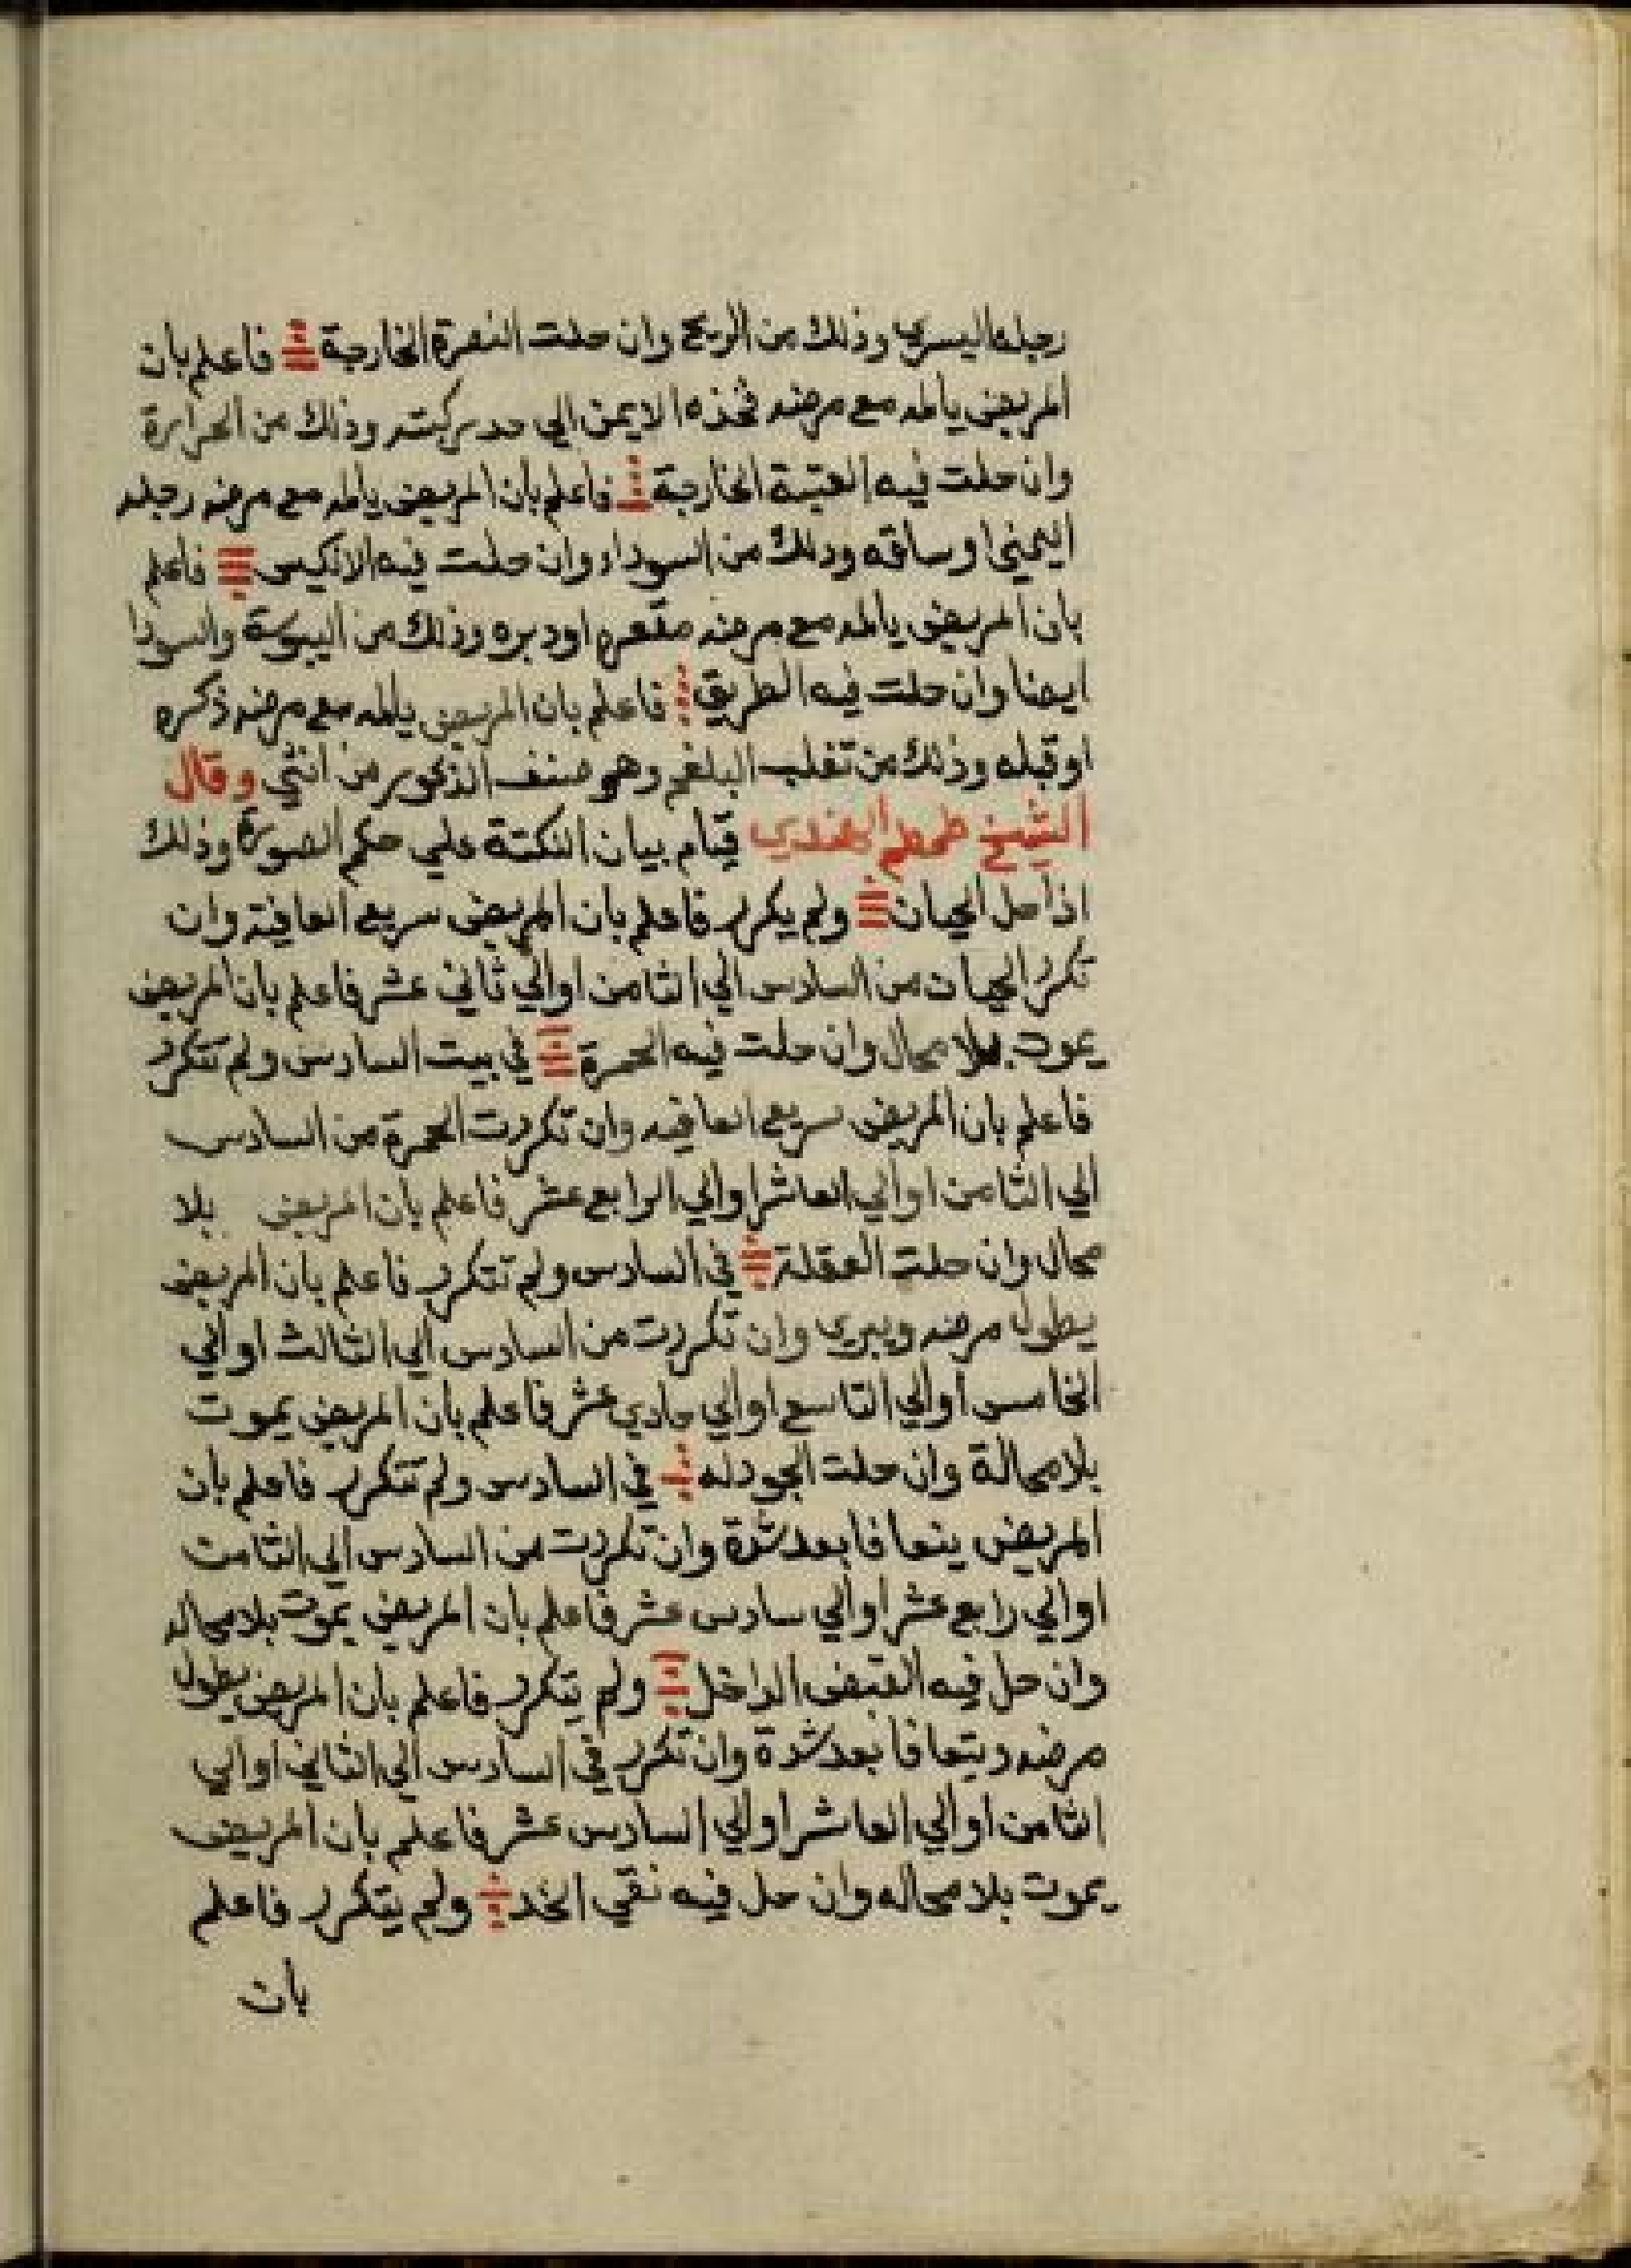 رجله اليسري وذلك من الريح وان حلت النصرة الخارجة فاعلم بان
المريض يالمه مع مرضه فخذه الايمن الي حد ركبته وذلك من الحرارة
وان حلت فيه العتبة الخارجة فاعلم بان المريض يالمه مع مرضه رجله
اليمني او ساقه وذلك من السوداء وان حلت فيه الانكيس فاعلم
بان المريض يالمه مع مرضه مقعره او دبره وذلك من اليبوسة والسودا
ايضا وان حلت فيه الطريق فاعلم بان المريض يالمه مع مرضه ذكره
او قبله وذلك من تغلب البلغم وهو صنف الذكور من انثي وقال
الشيخ طمطم الهندي قيام بيان النكتة علي حكم الصورة وذلك
اذا حل الحيان ولم يكرر فاعلم بان المريض سريع العافية وان
تكرر الحيان من السادس الي الثامن او الي ثاني عشر فاعلم بان المريض
يموت بلا محال وان حلت فيه الحمرة في بيت السادس ولم تتكرر
فاعلم بان المريض سريع العافيه وان تكررت الحمرة من السادس
الي الثامن او الي العاشر او الي الرابع عشر فاعلم بان المريض بلا
محال وان حلت العقلة في السادس ولم تتكرر فاعلم بان المريض
يطول مرضه ويبري وان تكررت من السادس الي الثالث او الي
الخامس او الي التاسع او الي حادي عشر فاعلم بان المريض يموت
بلا محالة وان حلت الجودله في السادس ولم تتكرر فاعلم بان
المريض يتعافا بعد شدة وان تكررت من السادس الي الثامن
او الي رابع عشر او الي سادس عشر فاعلم بان المريض يموت بلا محاله
وان حل فيه القبض الداخل ولم يتكرر فاعلم بان المريض يطول
مرضه ويتعافا بعد شدة وان تكرر في السادس الي الثاني او الي
الثامن او الي العاشر او الي السادس عشر فاعلم بان المريض
يموت بلا محاله وان حل فيه نقي الخد ولم يتكرر فاعلم
بان